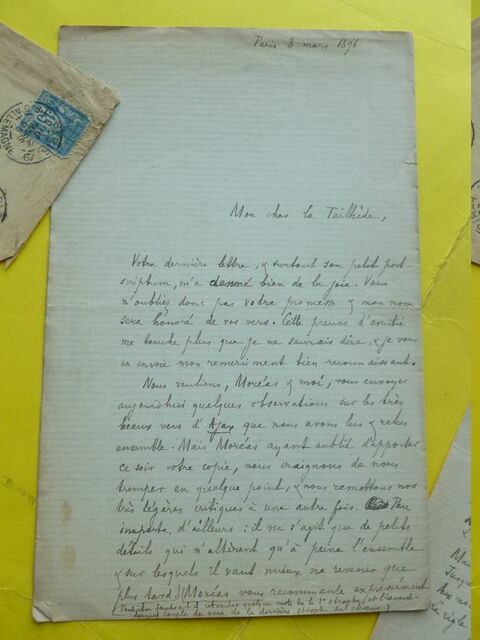 Paris 3 mars 1896
Mon cher la Tailhède,
Votre dernière lettre, & surtout son petit post-
scriptum, m'a donné bien de la joie. Vous
n'oubliez donc pas votre promesse & mon nom
sera honoré de vos vers. Cette preuve d'amitié
me touche plus que je ne saurais dire, & je vous
en envoie mon remerciment bien reconnaissant.
Nous voulions, Moréas & moi, vous envoyer
aujourdhui quelques observations sur les très
beaux vers d'Ajax que nous avons lus & relus
ensemble. Mais Moréas ayant oublié d'apporter
ce soir votre copie, nous craignons de nous
tromper en quelque point, & nous remettons nos
très légères critiques à une autre fois. Peu
importe, d'ailleurs : il ne s'agit que de petits
détails qui n'altèrent qu'à peine l'ensemble
& sur lesquels il vaut mieux ne revenir que
plus tard) (Moréas vous recommande expressément
quelques mots de la 1re strophe, et l'avant-
dernier couple de vers de la dernière strophe du chœur.)
ALLEMAGNE